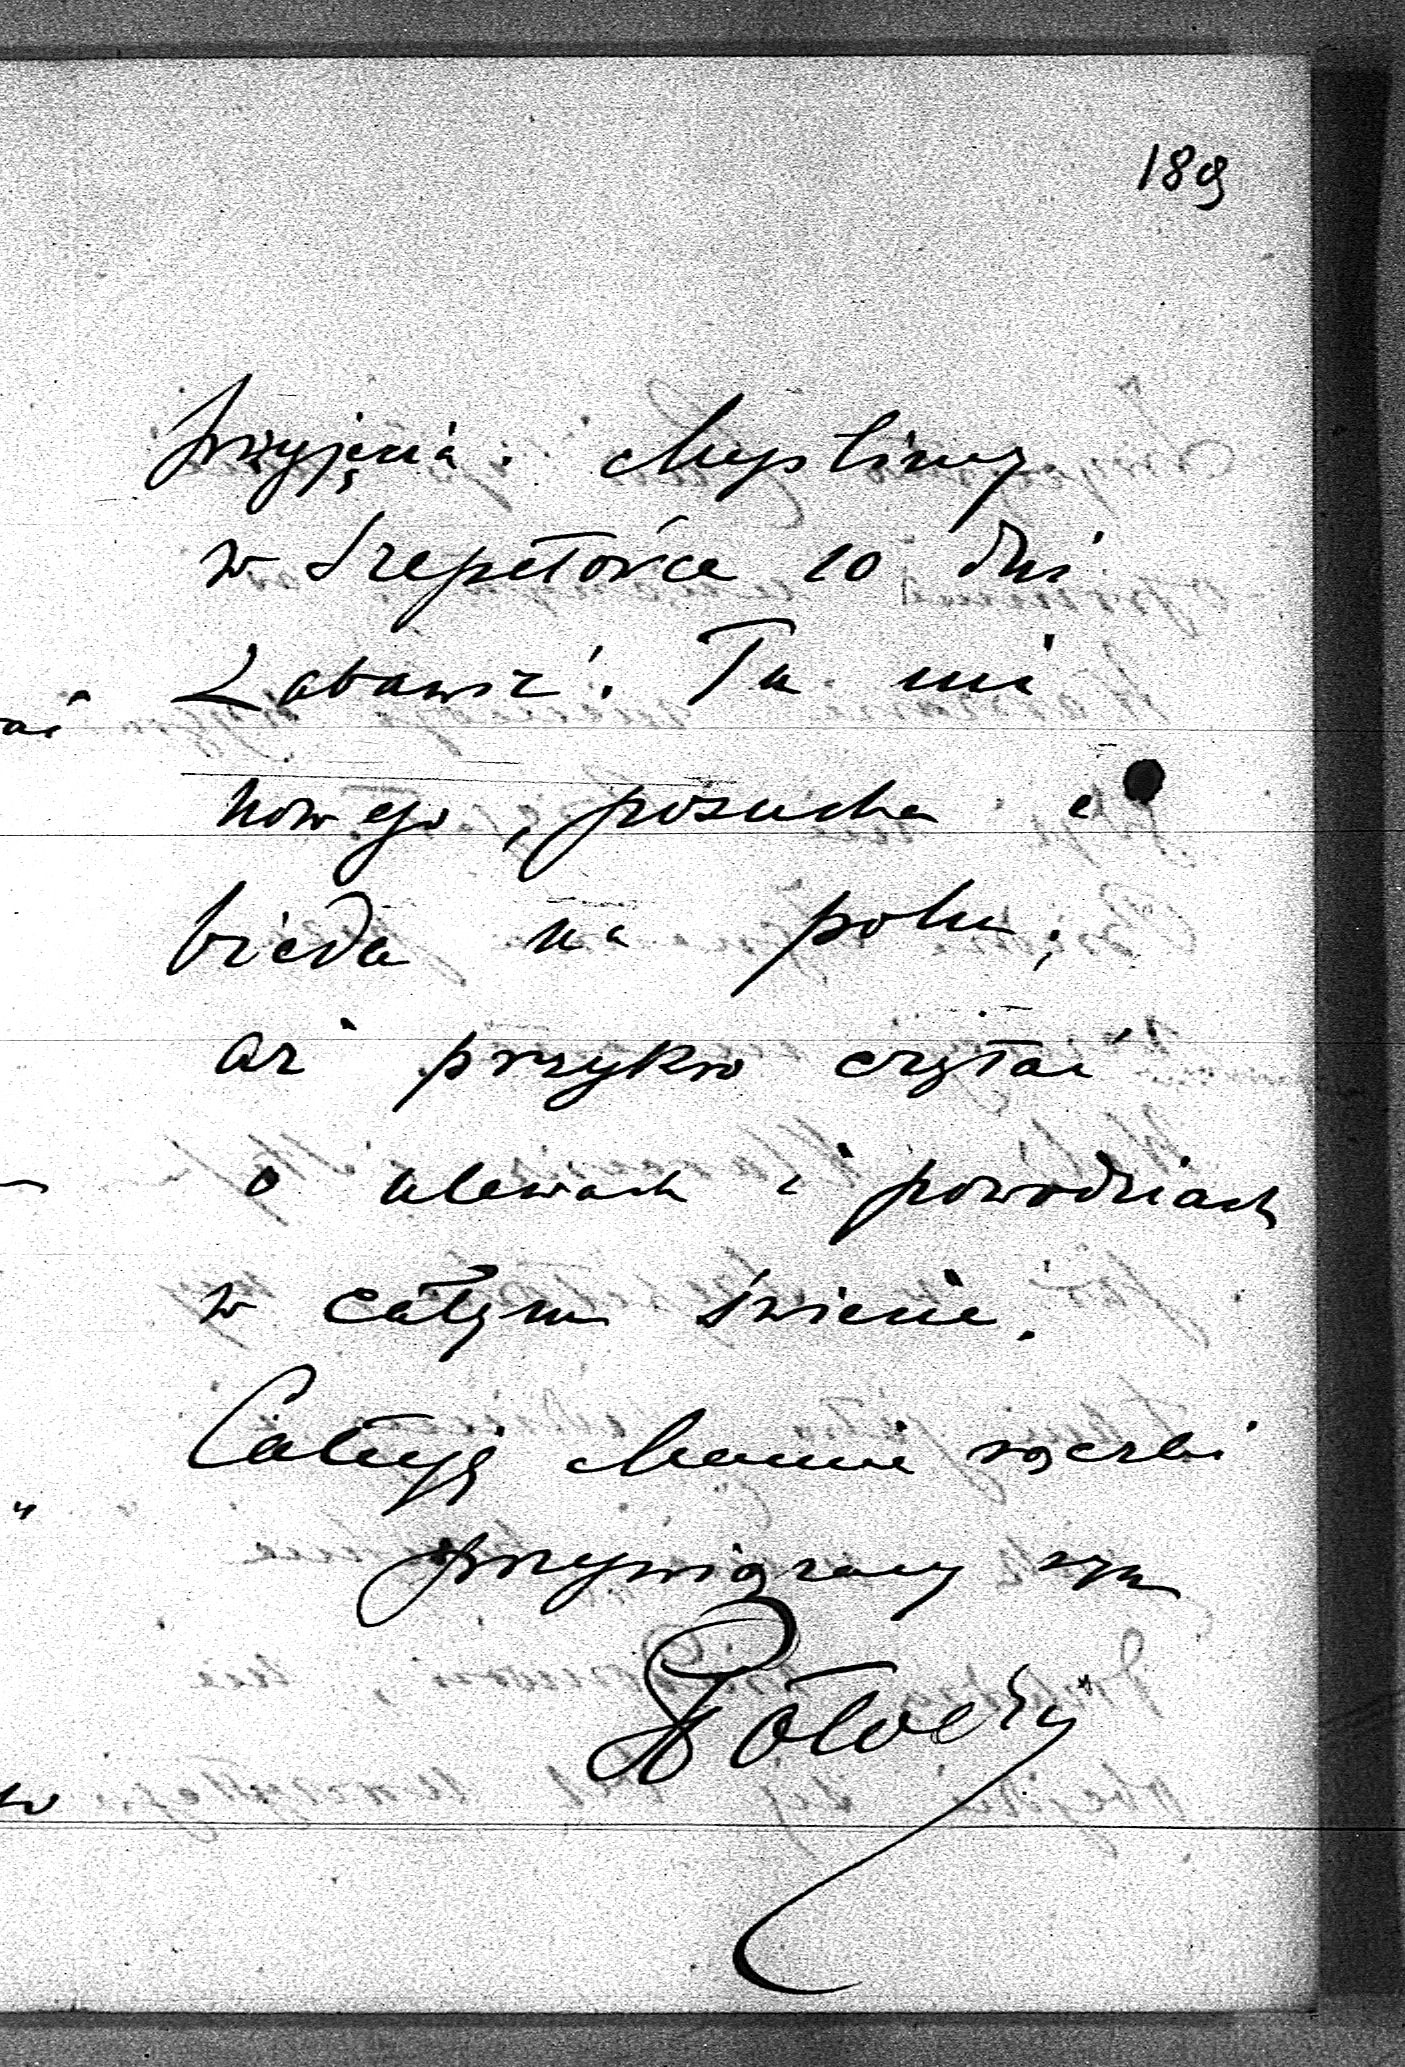 189
przyjęcia. Myślimy
w Szepetówce 10 dni
zabawić. Tu nic
nowego, posucha i
bieda na polu,
aż przykro czytać
o ulewach i powodziach
w całym świecie.
Całuję Mamie rączki
przywiązany syn
JPotocki